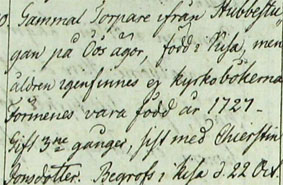 Gammal Torpare ifrån Hubbestu
gan på Öös ägor, född i Kisa, men
åldren igenfinnes ej kyrkobökerna
Förmenes vara född år 1727-
Gift 3ne gånger, sist med Chierstin
Jonsdotter. Begrofs i Kisa d. 22 Oct.